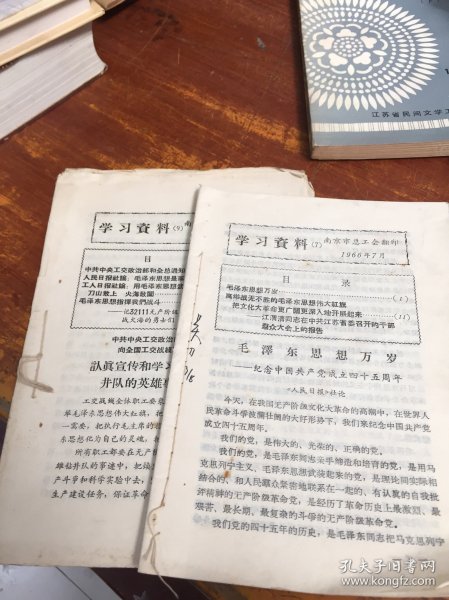 江苏省民间文学工
学习資料(9)
目
中共中央工交政治部和全总通知
人民日报社論：毛泽东思想是
工人日报社論：用毛泽东思想武
刀山敢上 火海敢闖
毛泽东思想指揮我們战斗
——記32111无产阶級
战火海的勇士们
中共中央工交政治
向全国工交战线
認真宣传和学习
井队的英雄事
工交战綫全体职工要
东思想化为自己的灵魂，把
所有职工都要在无产
雄钻井队的事迹中，把焕
产斗争和科学实验中去，
生产建设任务，保证革命
学习資料(7)
南京市总工会翻印
1966年7月
目 录
毛泽东思想万岁 (1)
高举战无不胜的毛泽东思想伟大紅旗
把文化大革命更广闊更深入地开展起来 (11)
——江渭清同志在中共江苏省委召开的干部
羣众大会上的报告
毛澤东思想万岁
——纪念中国共产党成立四十五周年
《人民日报》社论
今天，在我国无产阶级文化大革命的高潮中，在世界人
民革命斗争波澜壮阔的大好形势下，我们来纪念中国共产党
成立四十五周年。
我们的党，是伟大的、光荣的、正确的党。
我们的党，是毛泽东同志亲手缔造和培育的党，是用马
克思列宁主义、毛泽东思想武装起来的党，是理论同实际相
结合的、和人民群众紧密地联系在一起的、有认真的自我批
评精神的无产阶级革命党，是经历了革命历史上最激烈、最
艰苦、最长期、最复杂的斗争的无产阶级革命党。
我们党的四十五年的历史，是毛泽东同志把马克思列宁
孔夫子旧书网
https://kongfz.com/